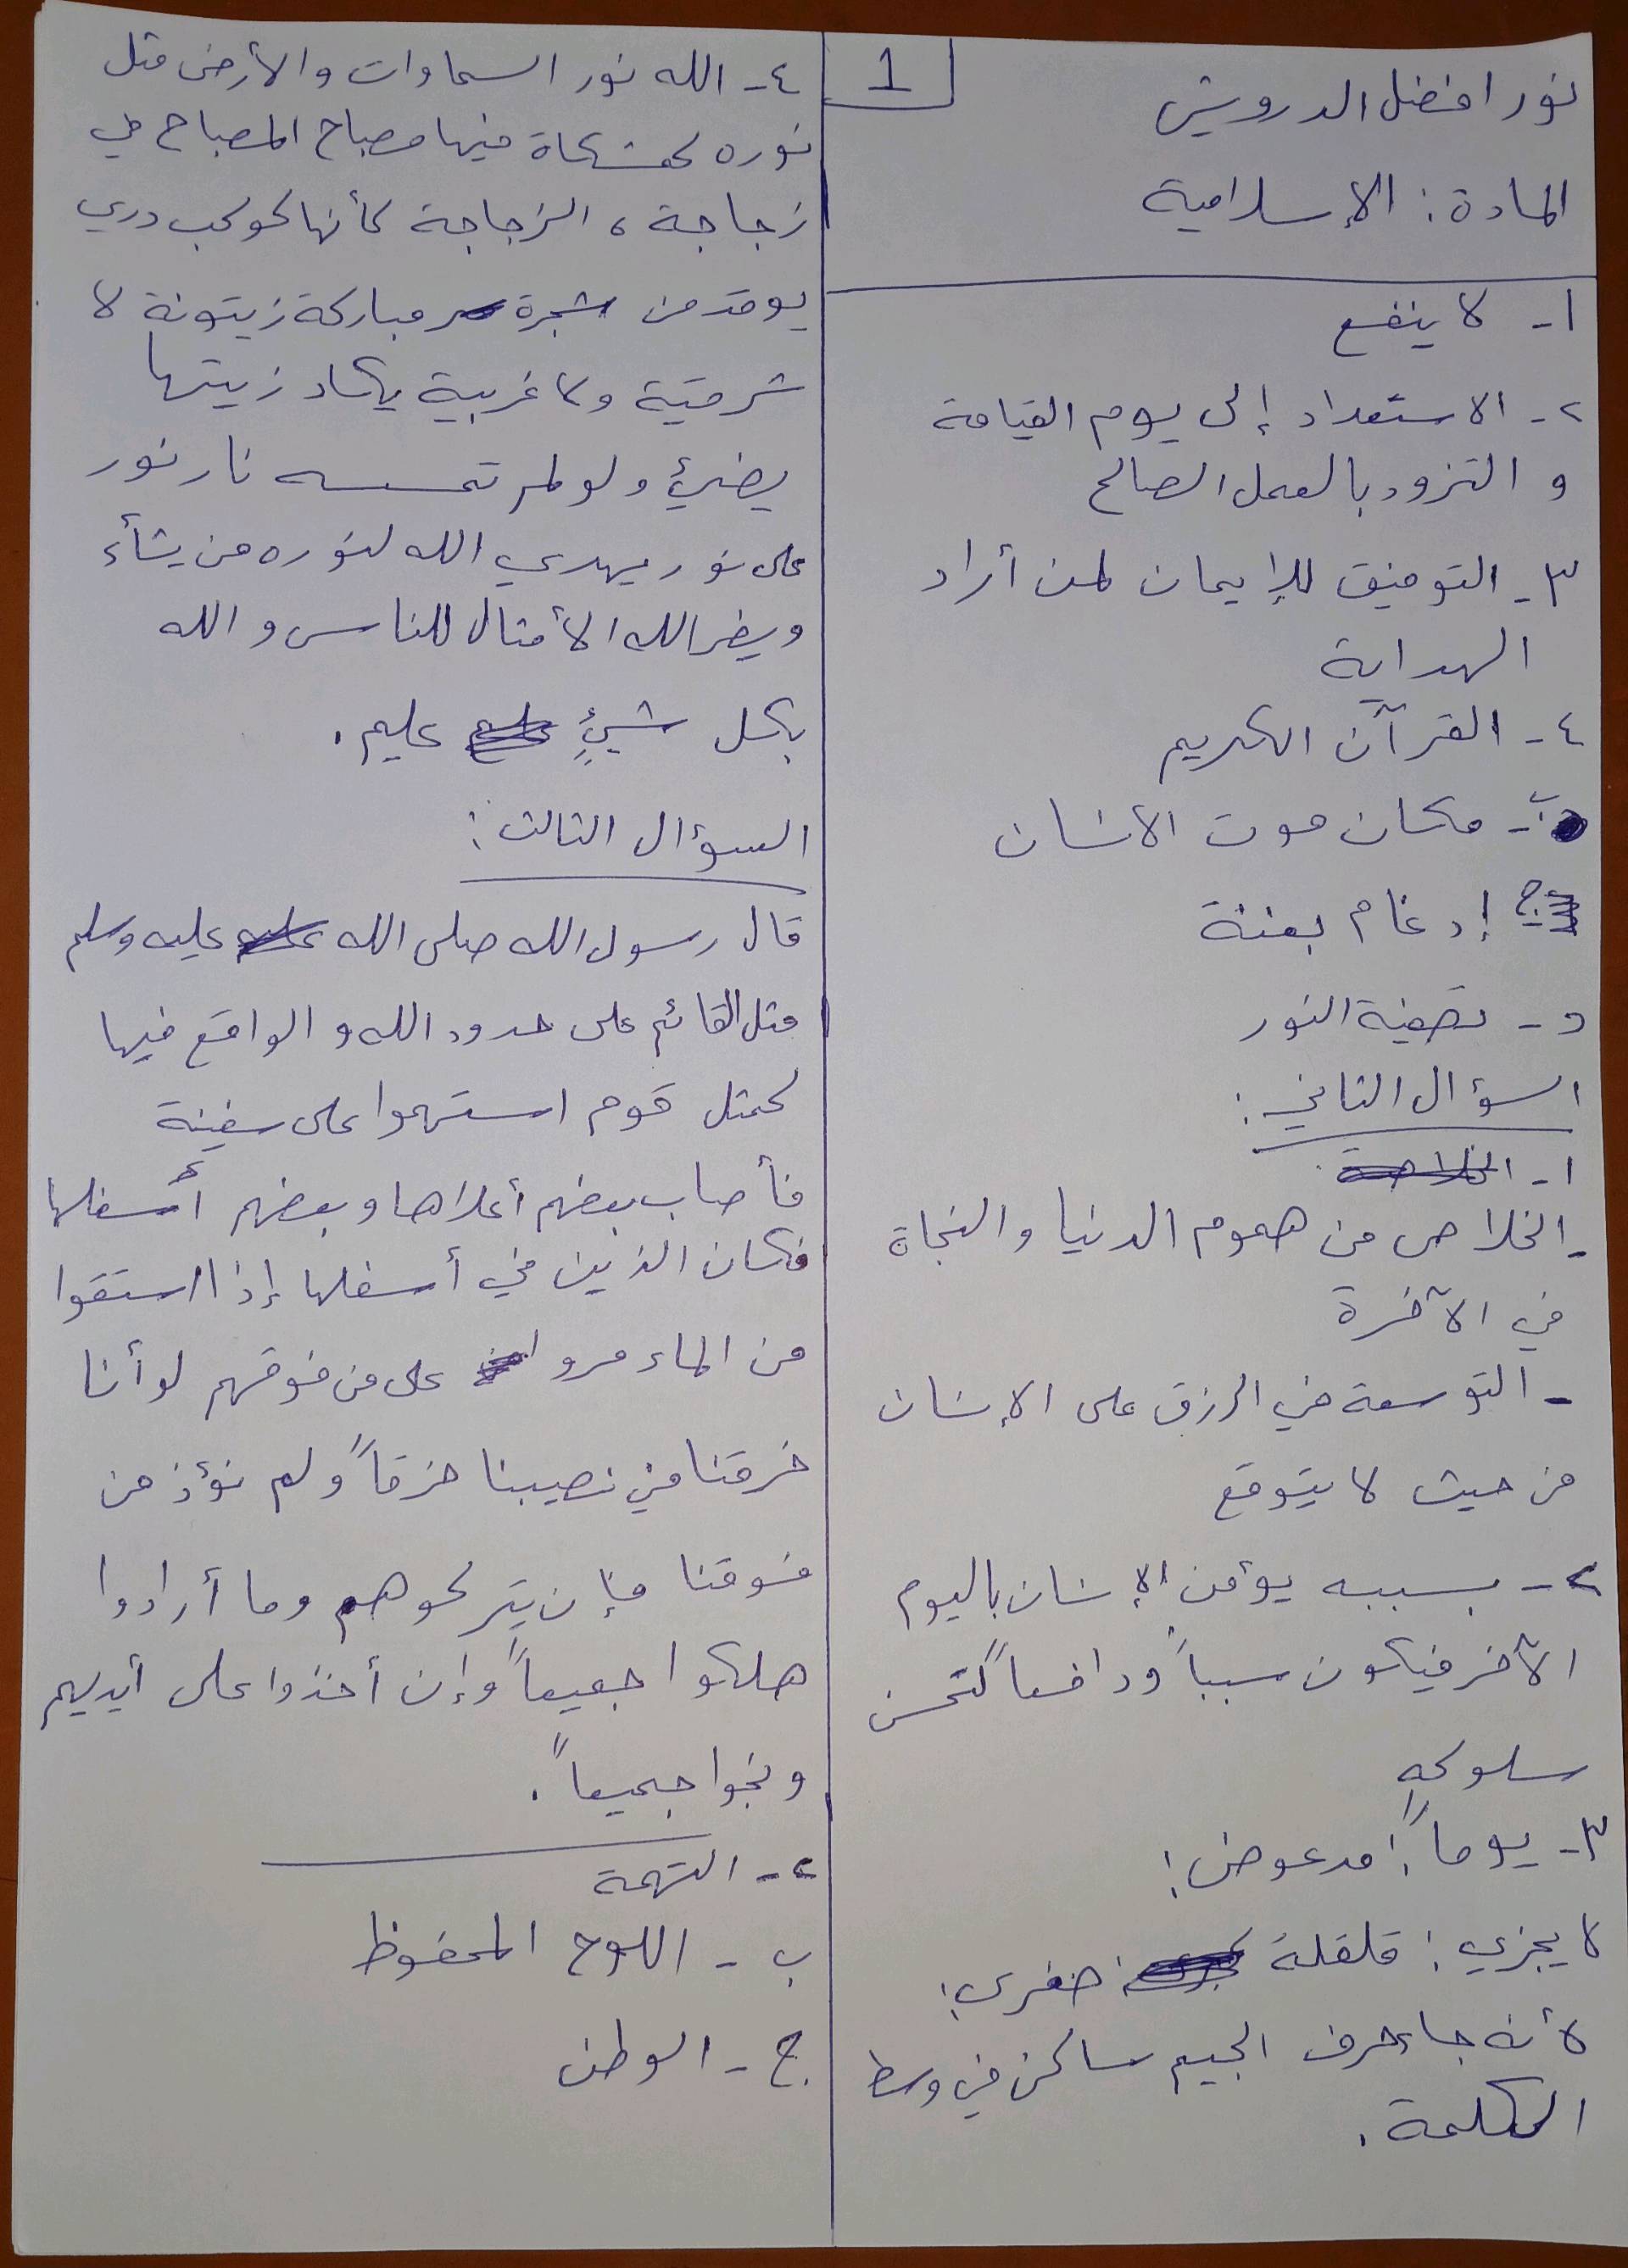 1
نور افضل الدرويش
المادة: الإسلامية
١- لا ينفع
٢- الاستعداد إلى يوم القيامة
و التزود بالعمل الصالح
٣- التوفيق للإيمان لمن أراد
الهداية
٤- القرآن الكريم
ب- مكان موت الانسان
ج- إدغام بغنة
د- تصفية النور
السؤال الثاني:
١-
- الخلاص من هموم الدنيا والنجاة
في الآخرة
- التوسعة في الرزق على الإنسان
من حيث لا يتوقع
٢- بسببه يؤمن الإنسان باليوم
الآخر فيكون سبباً ودافعاً لتحسن
سلوكه
٣- يوماً: مد عوض:
لا يجزي: قلقلة صغرى:
لأنه جاء حرف الجيم ساكن في وسط
الكلمة.
٤- الله نور السماوات والأرض مثل
نوره كمشكاة فيها مصباح المصباح في
زجاجة، الزجاجة كأنها كوكب دري
يوقد من شجرة مباركة زيتونة لا
شرقية ولا غربية يكاد زيتها
يضيئ ولو لم تمسسه نار نور
على نور يهدي الله لنوره من يشأء
ويضر الله الأمثال للناس و الله
بكل شيئٍ عليم.
السؤال الثالث:
قال رسول الله صلى الله عليه وسلم
مثل القائم على حدود الله و الواقع فيها
كمثل قوم استهموا على سفينة
فأصاب بعضهم أعلاها وبعضهم أسفلها
فكان الذين في أسفلها إذا استقوا
من الماء مروا على من فوقهم لو أنا
خرقنا في نصيبنا خرقاً ولم نؤذ من
فوقنا فإن يتركوهم وما أرادوا
هلكوا جميعاً وإن أخذوا على أيديهم
ونجوا جميعاً.
٢- التهمة
ب- اللوح المحفوظ
ج- الوطن